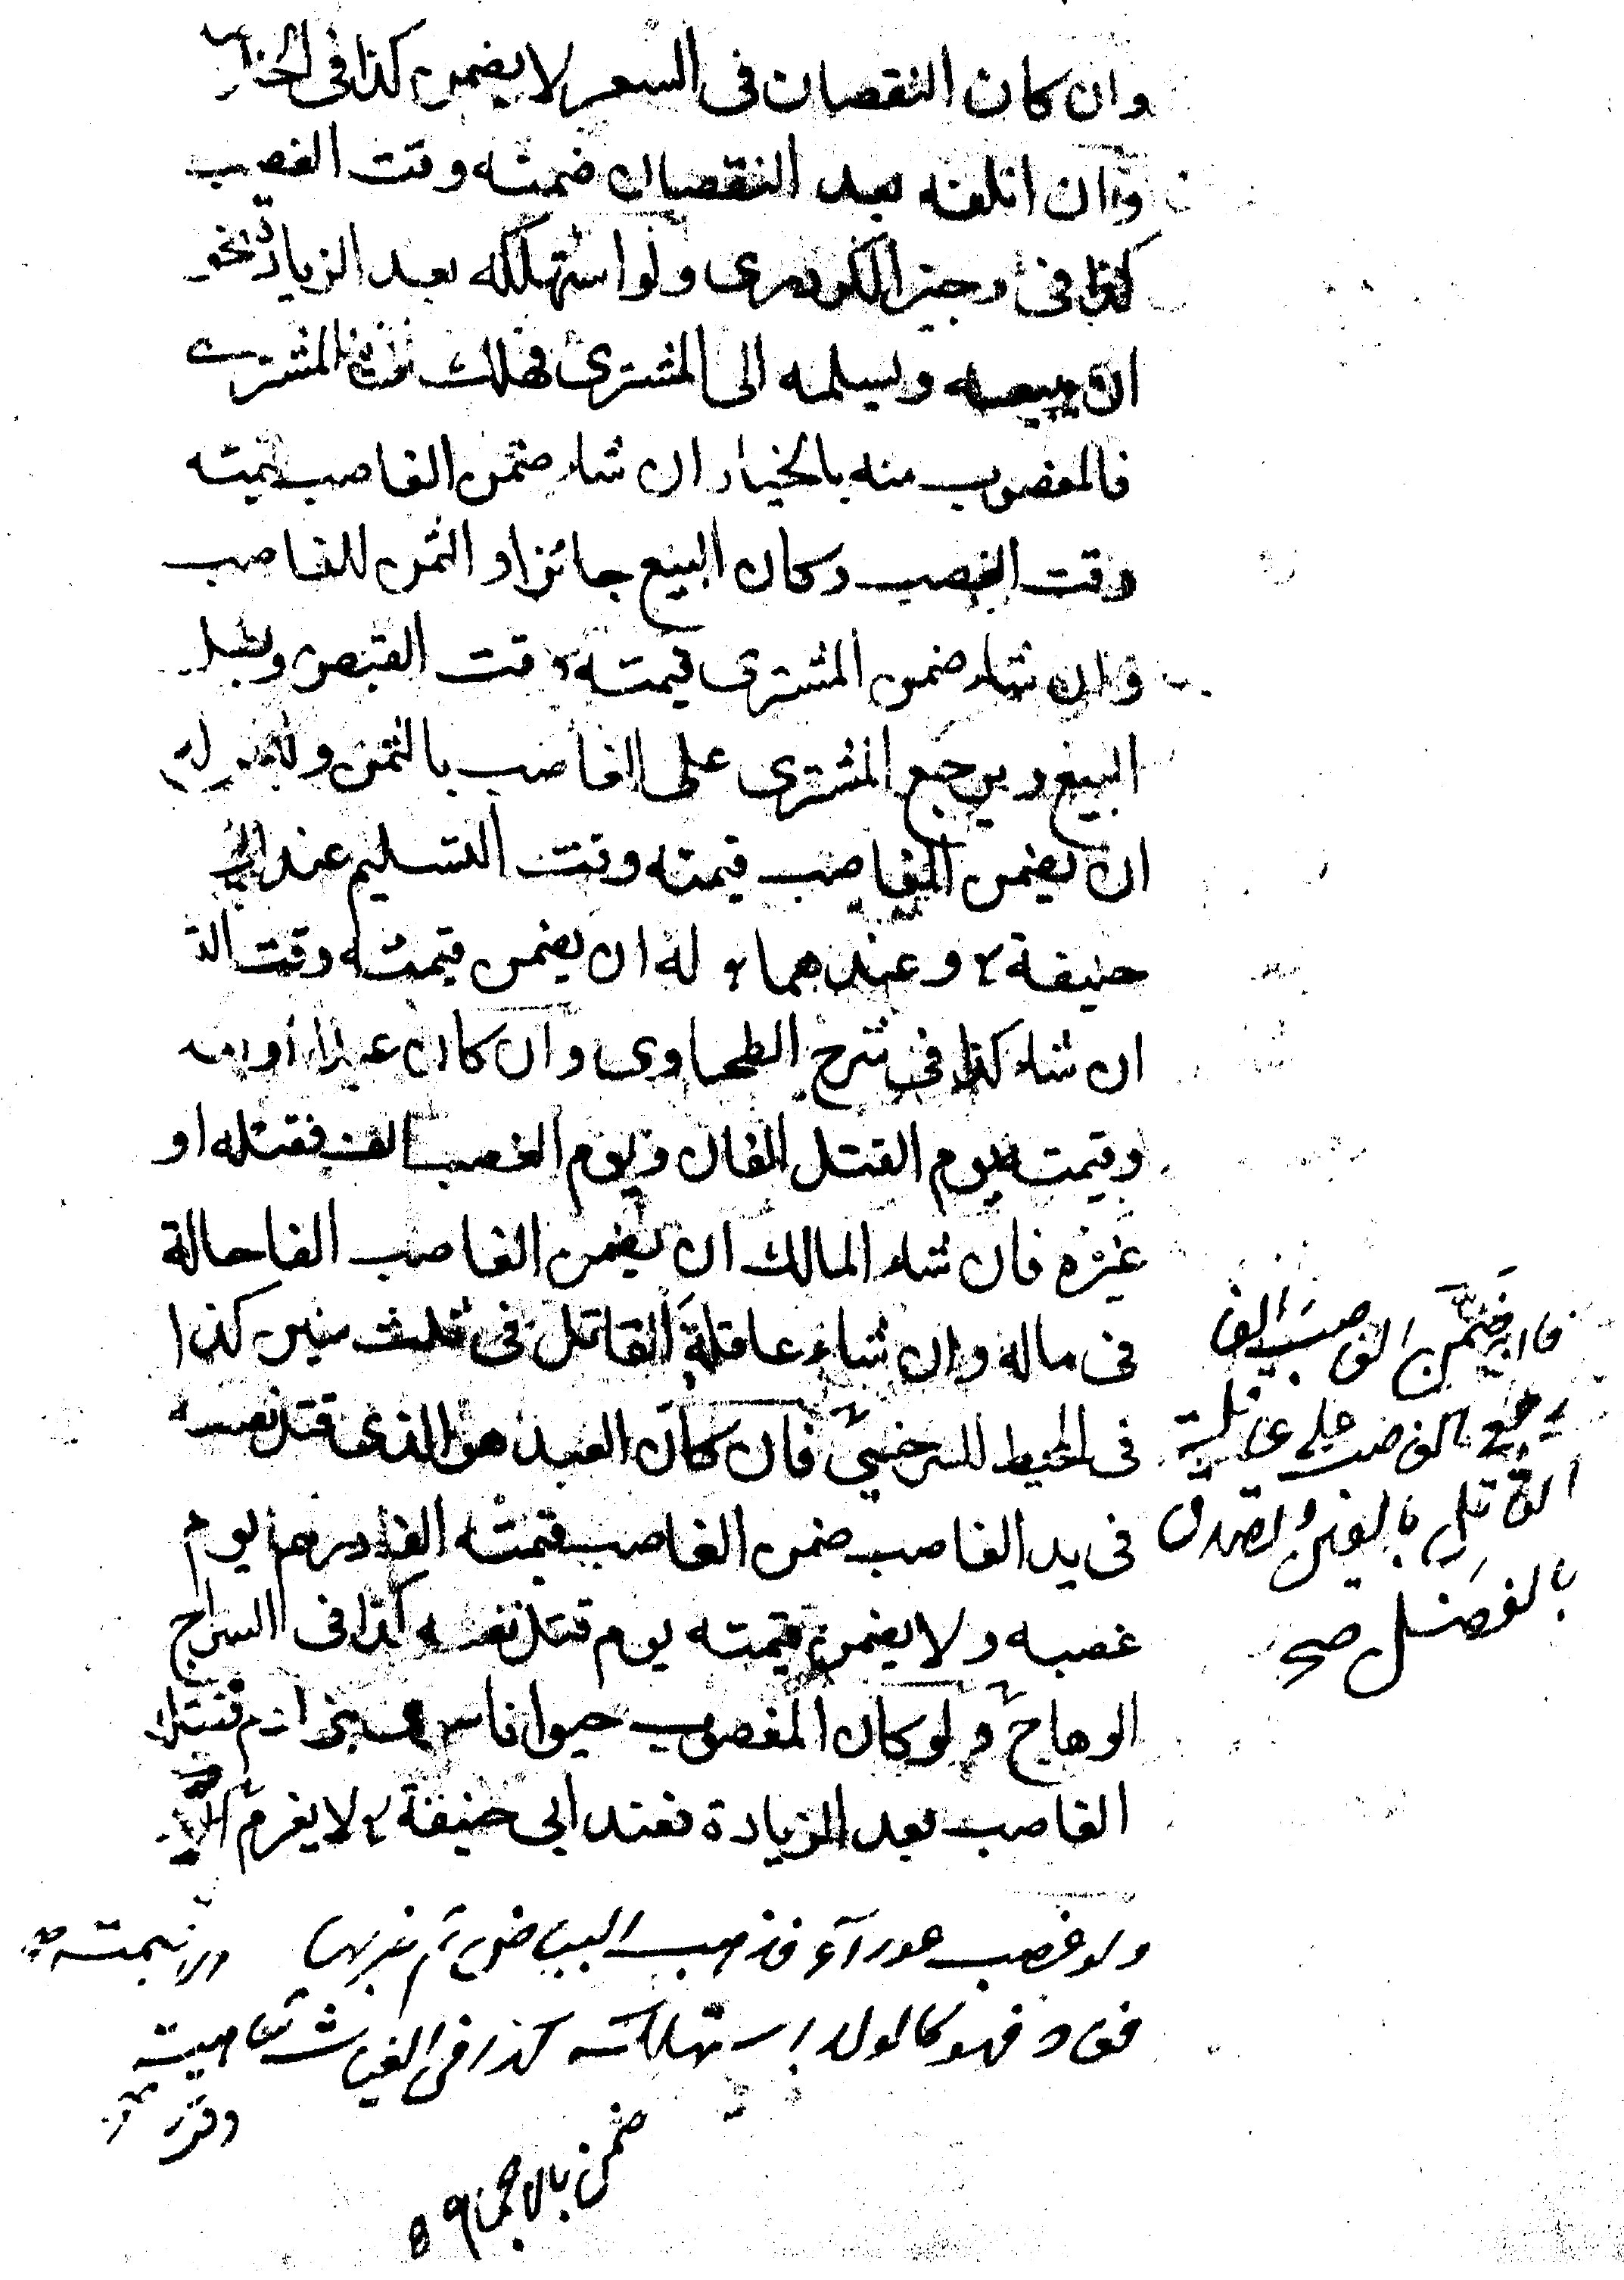 وان كان النقصان فى السعر لا يضمن كذا فى
وان اتلفه بعد النقصان ضمنه وقت الغصب
كذا فى وجيز الكردرى ولو استهلكه بعد الزيادة نحو
ان يبيعه ويسلمه الى المشترى فهلك عند المشترى
فالمغصوب منه بالخيار ان شاء ضمن الغاصب قيمته
وقت الغصب وكان البيع جائزا و الثمن للغاصب
وان شاء ضمن المشترى قيمته وقت القبض وبطل
البيع ويرجع المشترى على الغاصب بالثمن وليس له
ان يضمن الغاصب قيمته وقت التسليم عند ابى
حنيفة رح وعندهما رح له ان يضمن قيمته وقت
ان شاء كذا فى شرح الطحاوى وان كان عبدا او امة
وقيمته يوم القتل الفان ويوم الغصب الف فقتله او
غيره فان شاء المالك ان يضمن الغاصب الفا حالة
فى ماله وان شاء عاقلة القاتل فى ثلث سنين كذا
فى المحيط للسرخسى فان كان العبد هو الذى قتل نفسه
فى يد الغاصب ضمن الغاصب قيمته الفا درهم يوم
غصبه ولا يضمن قيمته يوم قتل نفسه كذا فى السراج
الوهاج ولو كان المغصوب حيوانا سوى بنى ادم فقتله
الغاصب بعد الزيادة فعند ابى حنيفة رح لا يغرم الا
فان ضمن الغاصب الف
يرجع الغاصب على عاقلة
القاتل بالفين وتصدق
بالفضل صح
ولو غصب عوراء فذهب البياض ثم
فهو كالولد استهلكه كذا فى الغياثية
ضمن